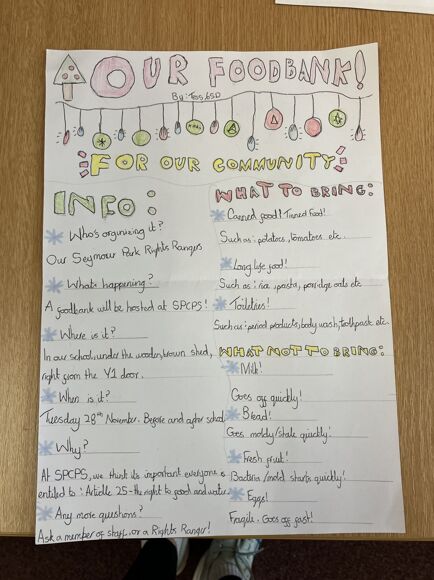 OUR FOODBANK!
By: Tess, 6SD
FOR OUR COMMUNITY
INFO:
Who's organizing it?
Our Seymour Park Rights Rangers
Whats happening?
A foodbank will be hosted at SPCPS!
Where is it?
In our school, under the wooden, brown shed,
right from the Y1 door.
When is it?
Tuesday 28th November. Before and after school
Why?
At SPCPS, we think its important everyone is
entitled to: Article 25 - the right to food and water.
Any more questions?
Ask a member of staff, or a Rights Ranger!
WHAT TO BRING:
Canned food! Tinned Food!
Such as: potatoes, tomatoes etc.
Long life food!
Such as: rice, pasta, porridge oats etc
Toiletries!
Such as: period products, body wash, toothpaste etc.
WHAT NOT TO BRING:
Milk!
Goes off quickly!
Bread!
Goes moldy/stale quickly!
Fresh fruit!
Bacteria/mold starts quickly!
Eggs!
Fragile. Goes off fast!